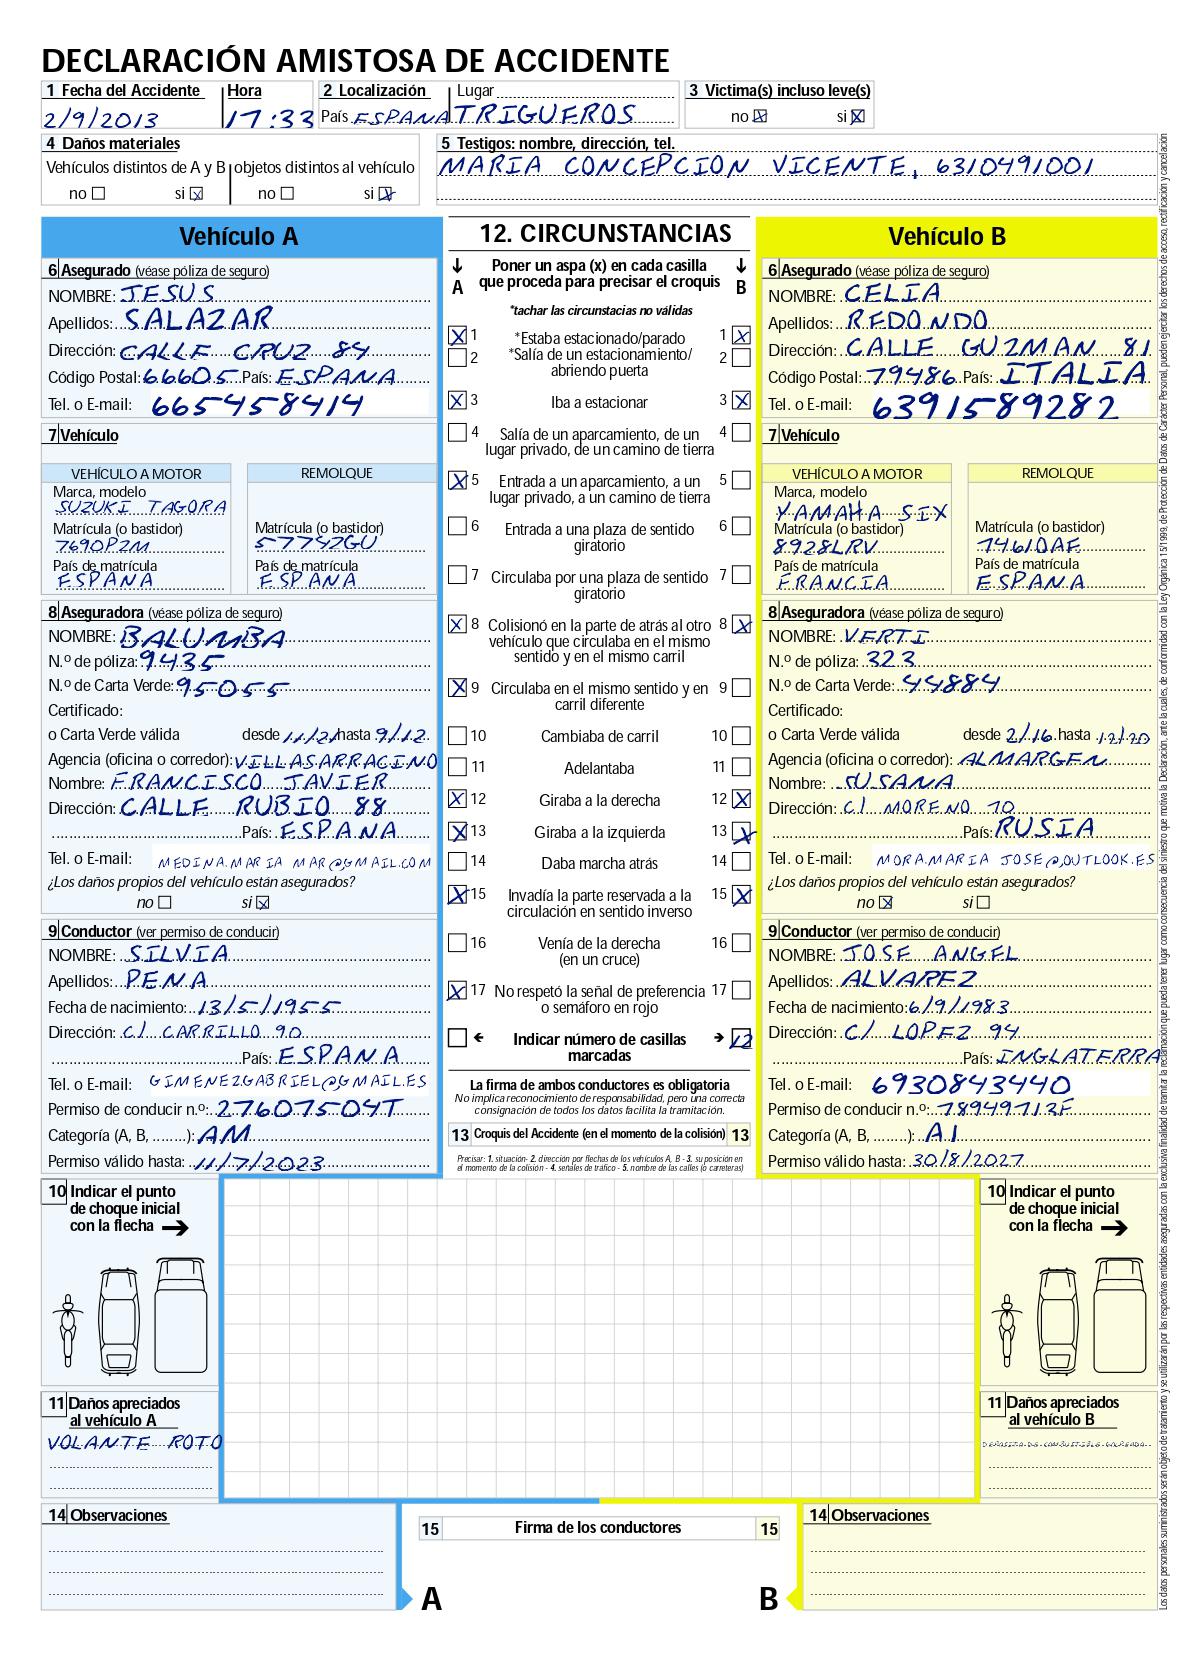 DECLARACIÓN AMISTOSA DE ACCIDENTE
1 Fecha del Accidente Hora
2/9/2013 17:33
2 Localización Lugar
País ESPANA TRIGUEROS
3 Victima(s) incluso leve(s)
no si
4 Daños materiales
Vehículos distintos de A y B objetos distintos al vehículo
no si no si
5 Testigos: nombre, dirección, tel.
MARIA CONCEPCION VICENTE, 6310491001
Vehículo A
6 Asegurado (véase póliza de seguro)
NOMBRE: JESUS
Apellidos: SALAZAR
Dirección: CALLE CRUZ 84
Código Postal: 66605 País: ESPANA
Tel. o E-mail: 665458414
7 Vehículo
VEHÍCULO A MOTOR REMOLQUE
Marca, modelo
SUZUKI TAGORA
Matrícula (o bastidor) Matrícula (o bastidor)
7690PZM 57742GU
País de matrícula País de matrícula
ESPANA ESPANA
8 Aseguradora (véase póliza de seguro)
NOMBRE: BALUMBA
N.º de póliza: 9435
N.º de Carta Verde: 95055
Certificado:
o Carta Verde válida desde 11/21 hasta 9/12
Agencia (oficina o corredor): VILLASARRACINO
Nombre: FRANCISCO JAVIER
Dirección: CALLE RUBIO 88
País: ESPANA
Tel. o E-mail: MEDINA.MARIA MAR@GMAIL.COM
¿Los daños propios del vehículo están asegurados?
no si
9 Conductor (ver permiso de conducir)
NOMBRE: SILVIA
Apellidos: PENA
Fecha de nacimiento: 13/5/1955
Dirección: C/ CARRILLO 90
País: ESPANA
Tel. o E-mail: GIMENEZGABRIEL@GMAIL.ES
Permiso de conducir n.º: 27607504T
Categoría (A, B, ........): AM
Permiso válido hasta: 11/7/2023
12. CIRCUNSTANCIAS
A Poner un aspa (x) en cada casilla que proceda para precisar el croquis B
*tachar las circunstacias no válidas
1 *Estaba estacionado/parado 1
2 *Salía de un estacionamiento/ 2
abriendo puerta
3 Iba a estacionar 3
4 Salía de un aparcamiento, de un 4
lugar privado, de un camino de tierra
5 Entrada a un aparcamiento, a un 5
lugar privado, a un camino de tierra
6 Entrada a una plaza de sentido 6
giratorio
7 Circulaba por una plaza de sentido 7
giratorio
8 Colisionó en la parte de atrás al otro 8
vehículo que circulaba en el mismo
sentido y en el mismo carril
9 Circulaba en el mismo sentido y en 9
carril diferente
10 Cambiaba de carril 10
11 Adelantaba 11
12 Giraba a la derecha 12
13 Giraba a la izquierda 13
14 Daba marcha atrás 14
15 Invadía la parte reservada a la 15
circulación en sentido inverso
16 Venía de la derecha 16
(en un cruce)
17 No respetó la señal de preferencia 17
o semáforo en rojo
Indicar número de casillas 12
marcadas
La firma de ambos conductores es obligatoria
No implica reconocimiento de responsabilidad, pero una correcta
consignación de todos los datos facilita la tramitación.
13 Croquis del Accidente (en el momento de la colisión) 13
Precisar: 1. situación- 2. dirección por flechas de los vehículos A, B - 3. su posición en
el momento de la colisión - 4. señales de tráfico - 5. nombre de las calles (o carreteras)
Vehículo B
6 Asegurado (véase póliza de seguro)
NOMBRE: CELIA
Apellidos: REDONDO
Dirección: CALLE GUZMAN 81
Código Postal: 79486 País: ITALIA
Tel. o E-mail: 6391589282
7 Vehículo
VEHÍCULO A MOTOR REMOLQUE
Marca, modelo
YAMAHA SIX
Matrícula (o bastidor) Matrícula (o bastidor)
8928LRV 7461DAE
País de matrícula País de matrícula
FRANCIA ESPANA
8 Aseguradora (véase póliza de seguro)
NOMBRE: VERTI
N.º de póliza: 323
N.º de Carta Verde: 44884
Certificado:
o Carta Verde válida desde 2/16 hasta 12/20
Agencia (oficina o corredor): ALMARGEN
Nombre: SUSANA
Dirección: C/ MORENO 70
País: RUSIA
Tel. o E-mail: MORA.MARIA JOSE@OUTLOOK.ES
¿Los daños propios del vehículo están asegurados?
no si
9 Conductor (ver permiso de conducir)
NOMBRE: JOSE ANGEL
Apellidos: ALVAREZ
Fecha de nacimiento: 6/9/1983
Dirección: C/ LOPEZ 94
País: INGLATERRA
Tel. o E-mail: 6930843440
Permiso de conducir n.º: 78949713F
Categoría (A, B, ........): A1
Permiso válido hasta: 30/8/2027
10 Indicar el punto
de choque inicial
con la flecha
11 Daños apreciados
al vehículo A
VOLANTE ROTO
10 Indicar el punto
de choque inicial
con la flecha
11 Daños apreciados
al vehículo B
DEPOSITO DE COMBUSTIBLE GOLPEADO
14 Observaciones
15 Firma de los conductores 15
A B
14 Observaciones
Los datos personales suministrados serán objeto de tratamiento y se utilizarán por las respectivas entidades aseguradas con la exclusiva finalidad de tramitar la reclamación que pueda tener lugar como consecuencia del siniestro que motiva la Declaración, ante la cuales, de conformidad con la Ley Orgánica 15/1999, de Protección de Datos de Carácter Personal, pueden ejercitar los derechos de acceso, rectificación y cancelación